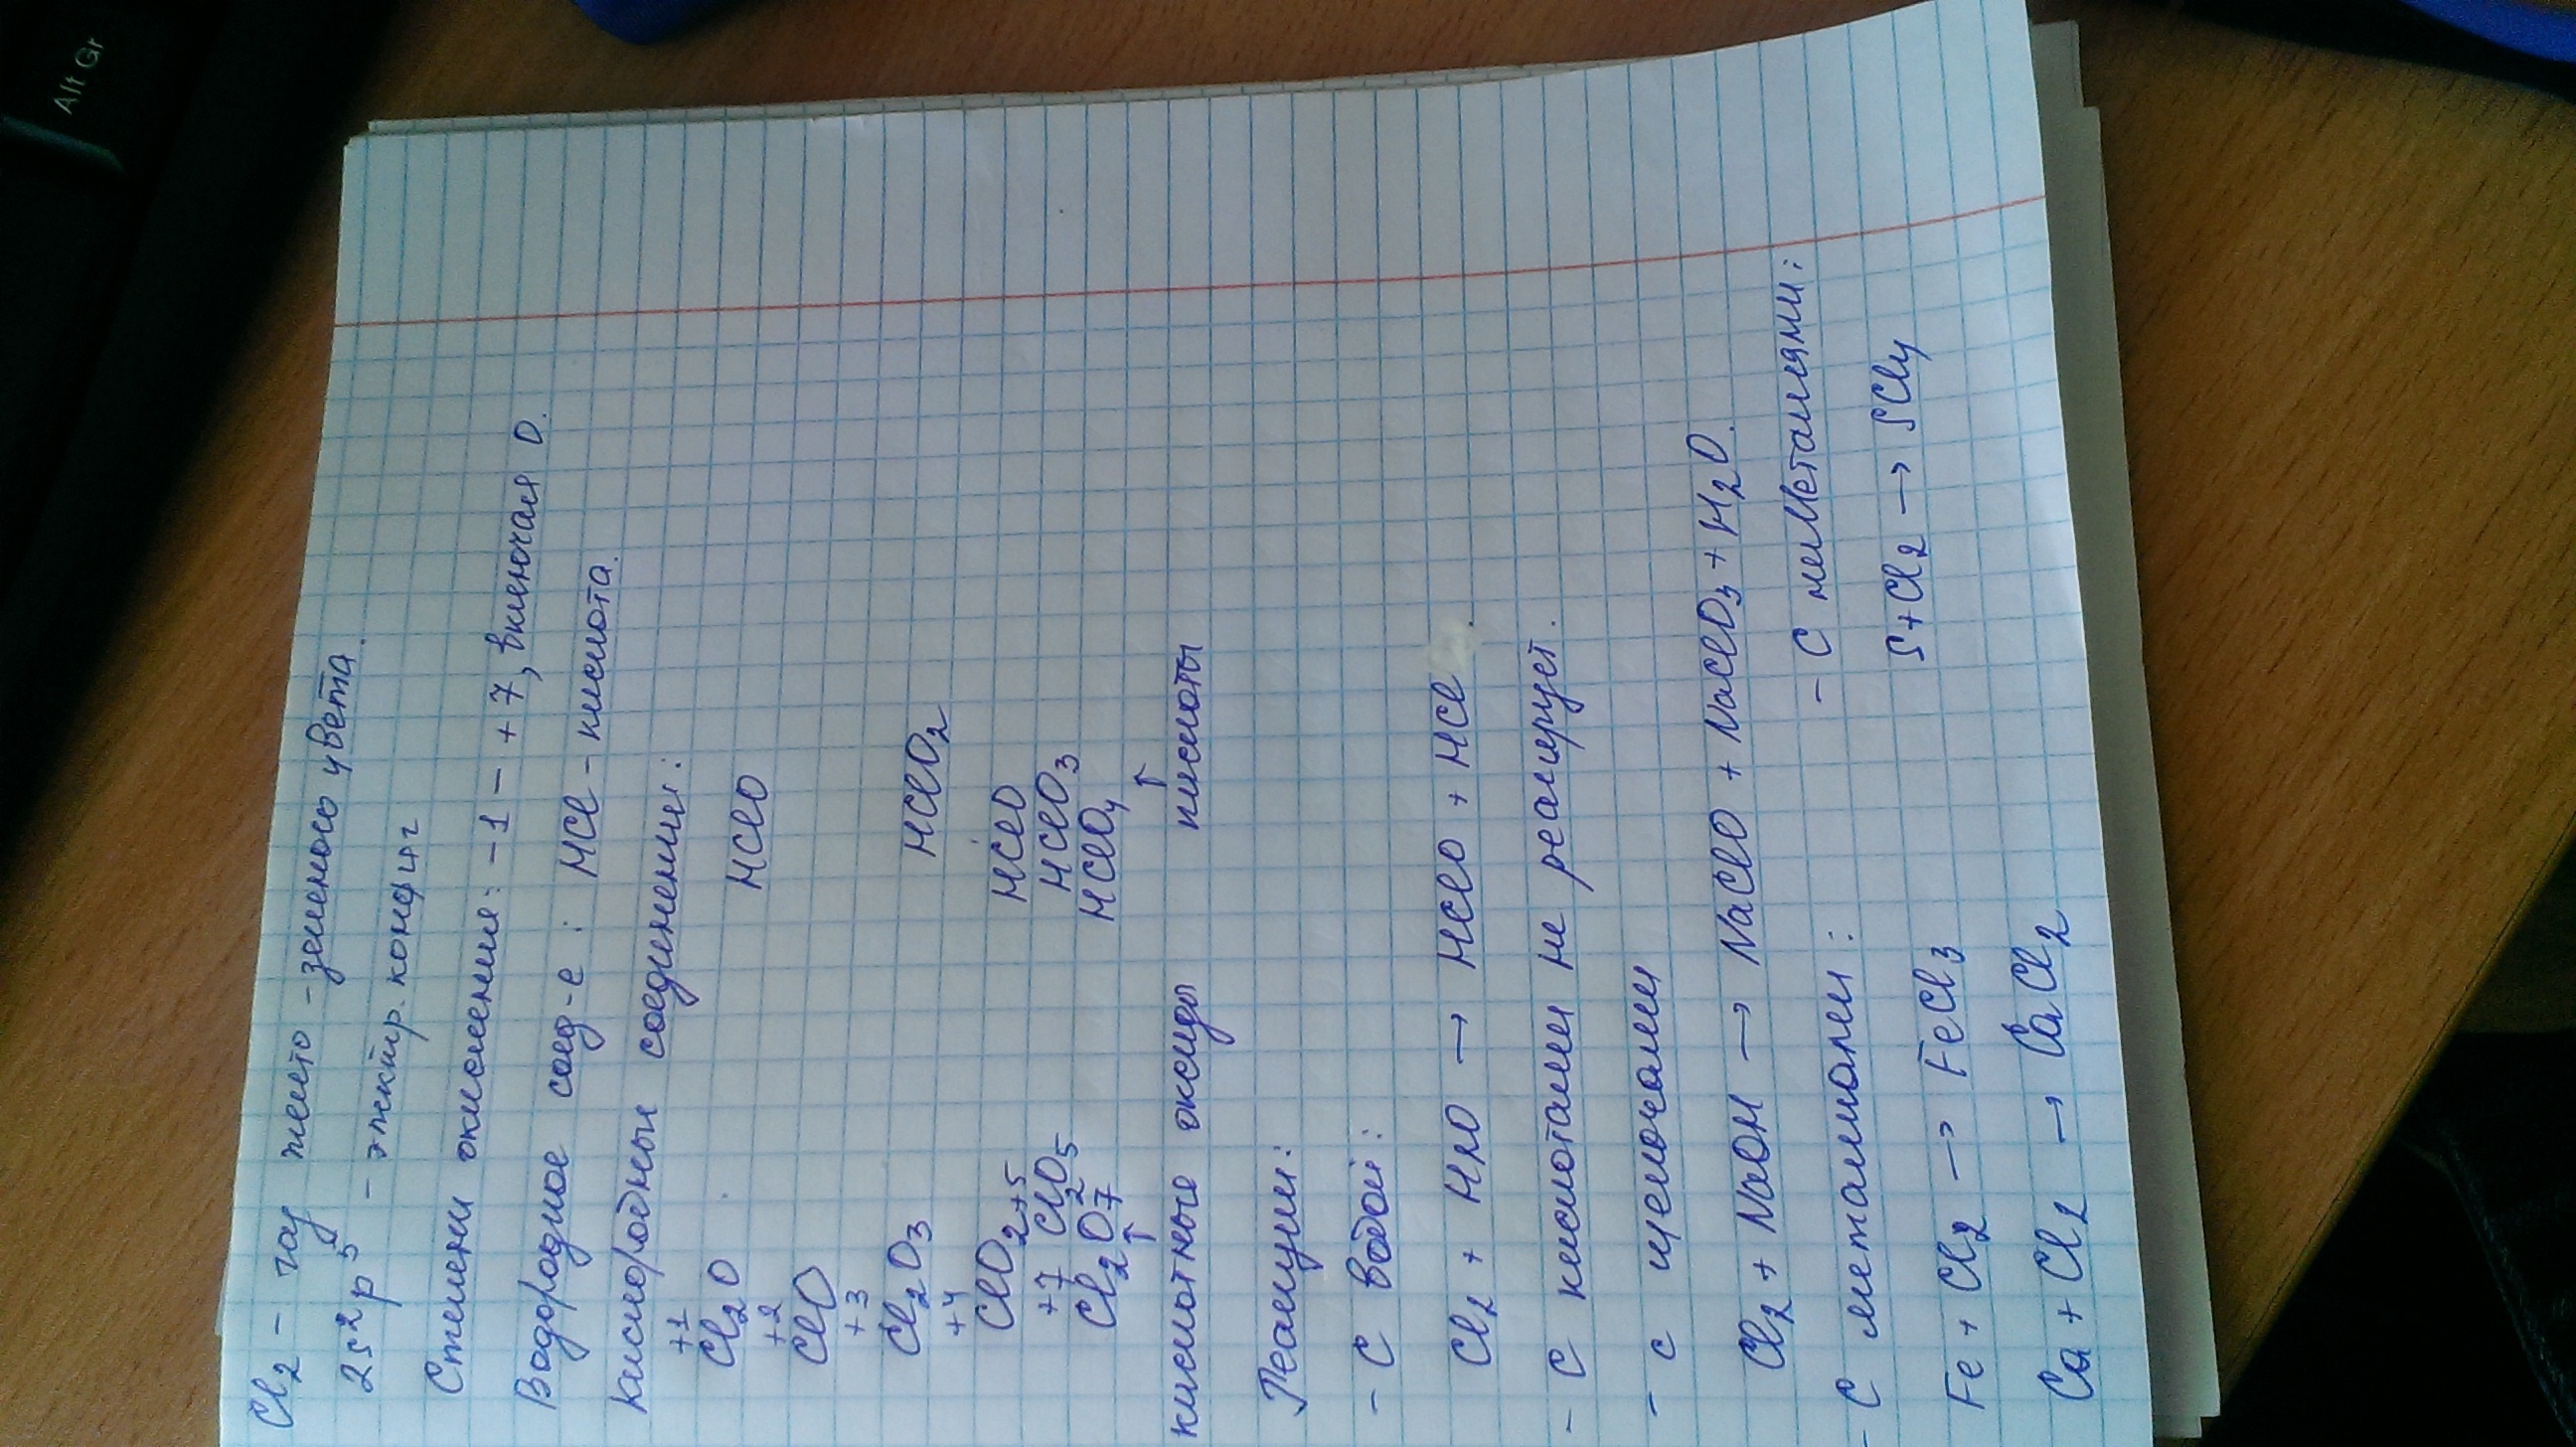 Alt Gr
Cl2 - газ желто-зеленого цвета.
2s2p5 - элктр. конфиг
Степени окисления: -1 - +7, включая 0.
Водородное соед-е: HCl - кислота.
Кислородный соединении:
+1
Cl2O HClO
+2
ClO
+3
Cl2O3 HClO2
+4
ClO2 +5 HClO
+7 Cl2O5 HClO3
Cl2O7 HClO4
↑ ↑
кислотные оксиды кислоты
Реакции:
- С водой:
Cl2 + H2O → HClO + HCl.
- С кислотами не реагирует.
- с щелочами
Cl2 + NaOH → NaClO + NaClO3 + H2O.
- С металлами: - С неметаллами:
Fe + Cl2 → FeCl3 S + Cl2 → SCl4
Ca + Cl2 → CaCl2